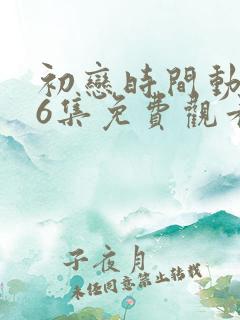 初戀時間動
6集免費觀看
子夜月
未經同意禁止轉載